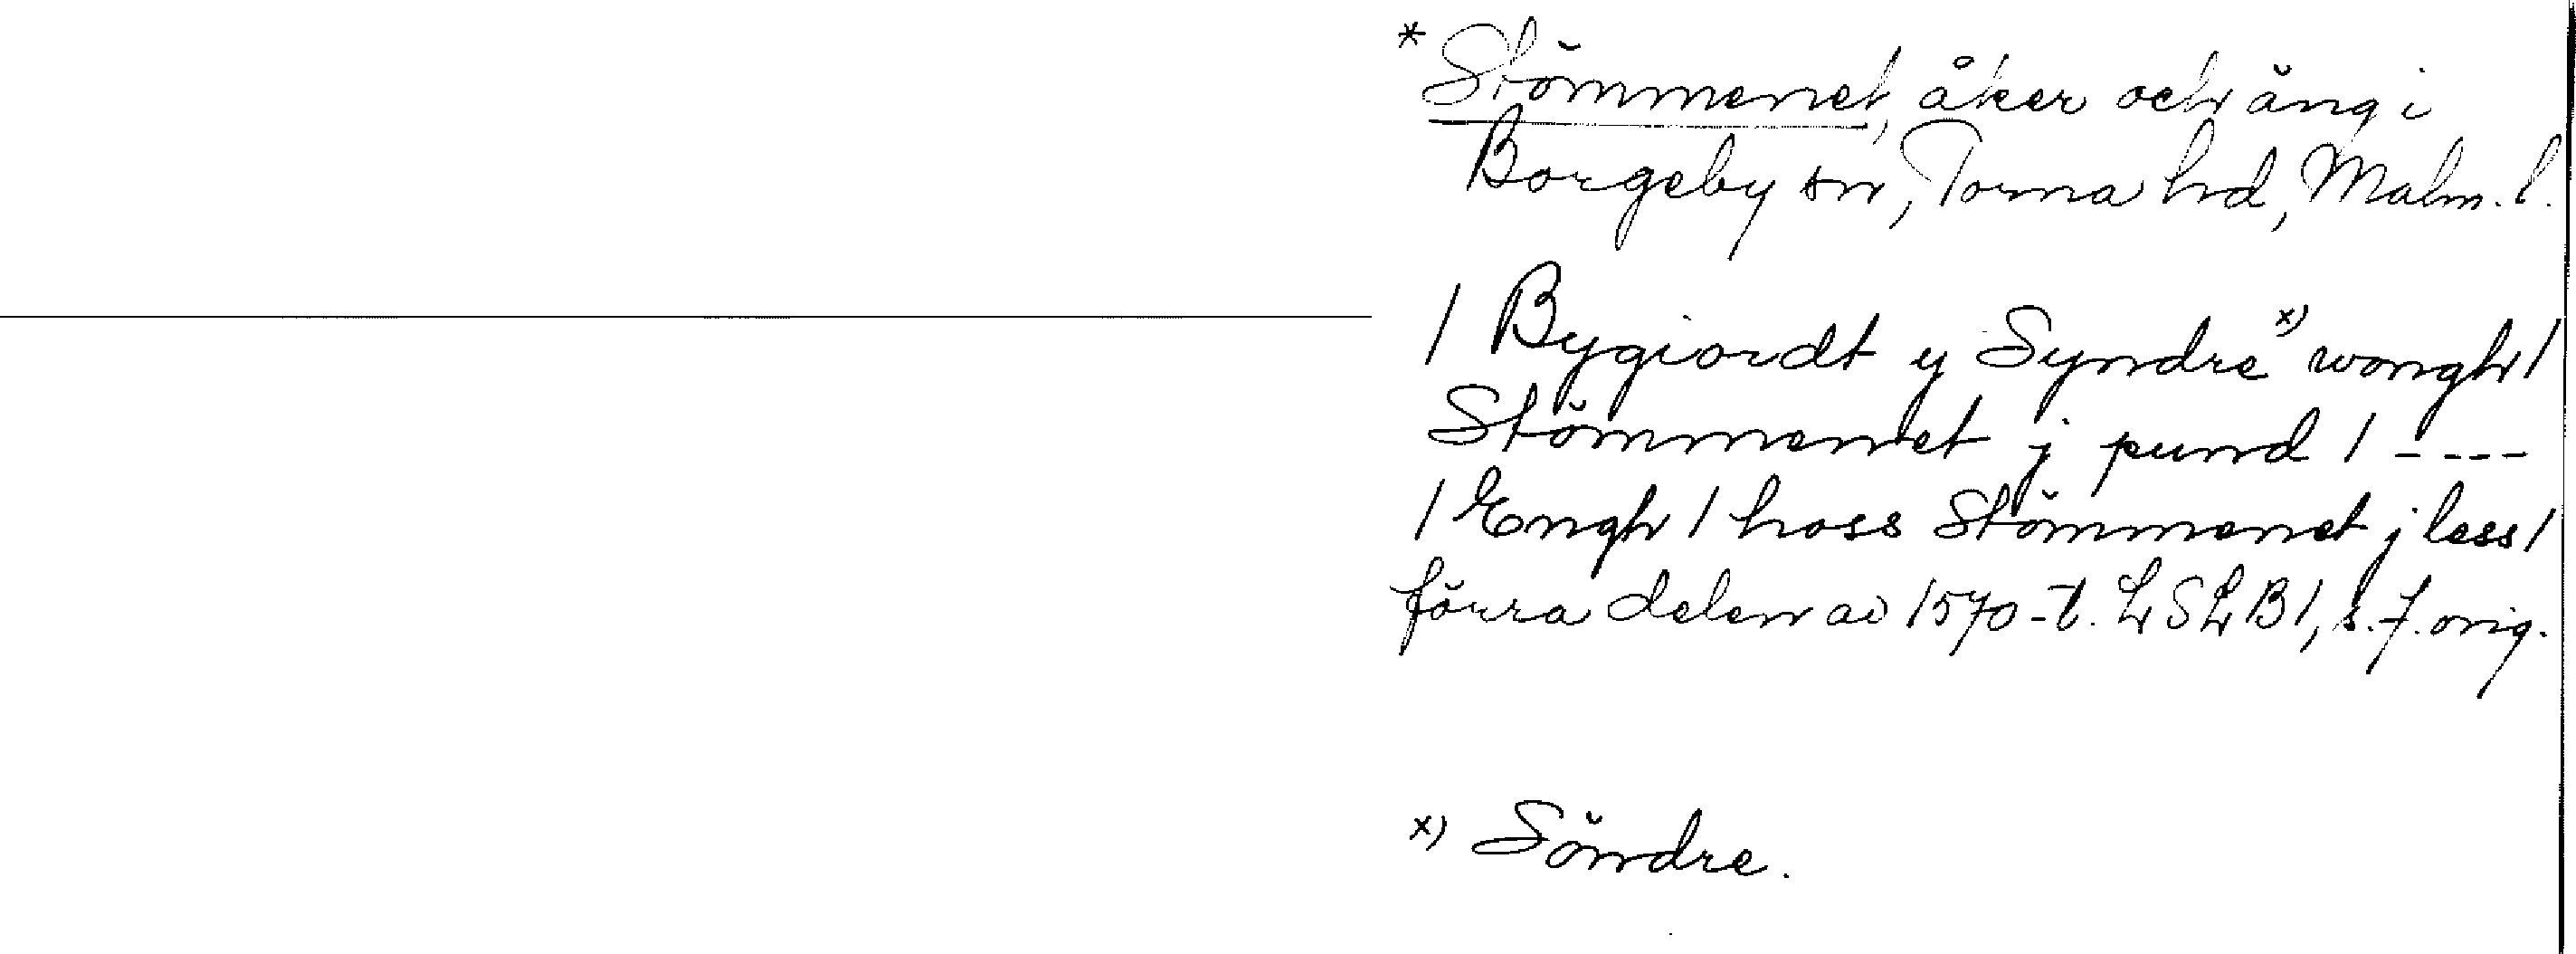 * Stömmenet, åker och äng i
Borgeby sn, Torna hd, Malm. l.
/ Bygiordt y Syndre x) wongh /
Stömmenet j pund / ----
/ Engh / hoss Stömmenet j less /
förra delen av 1570-t. LSLB 1, s. 7. orig.
x) Söndre.